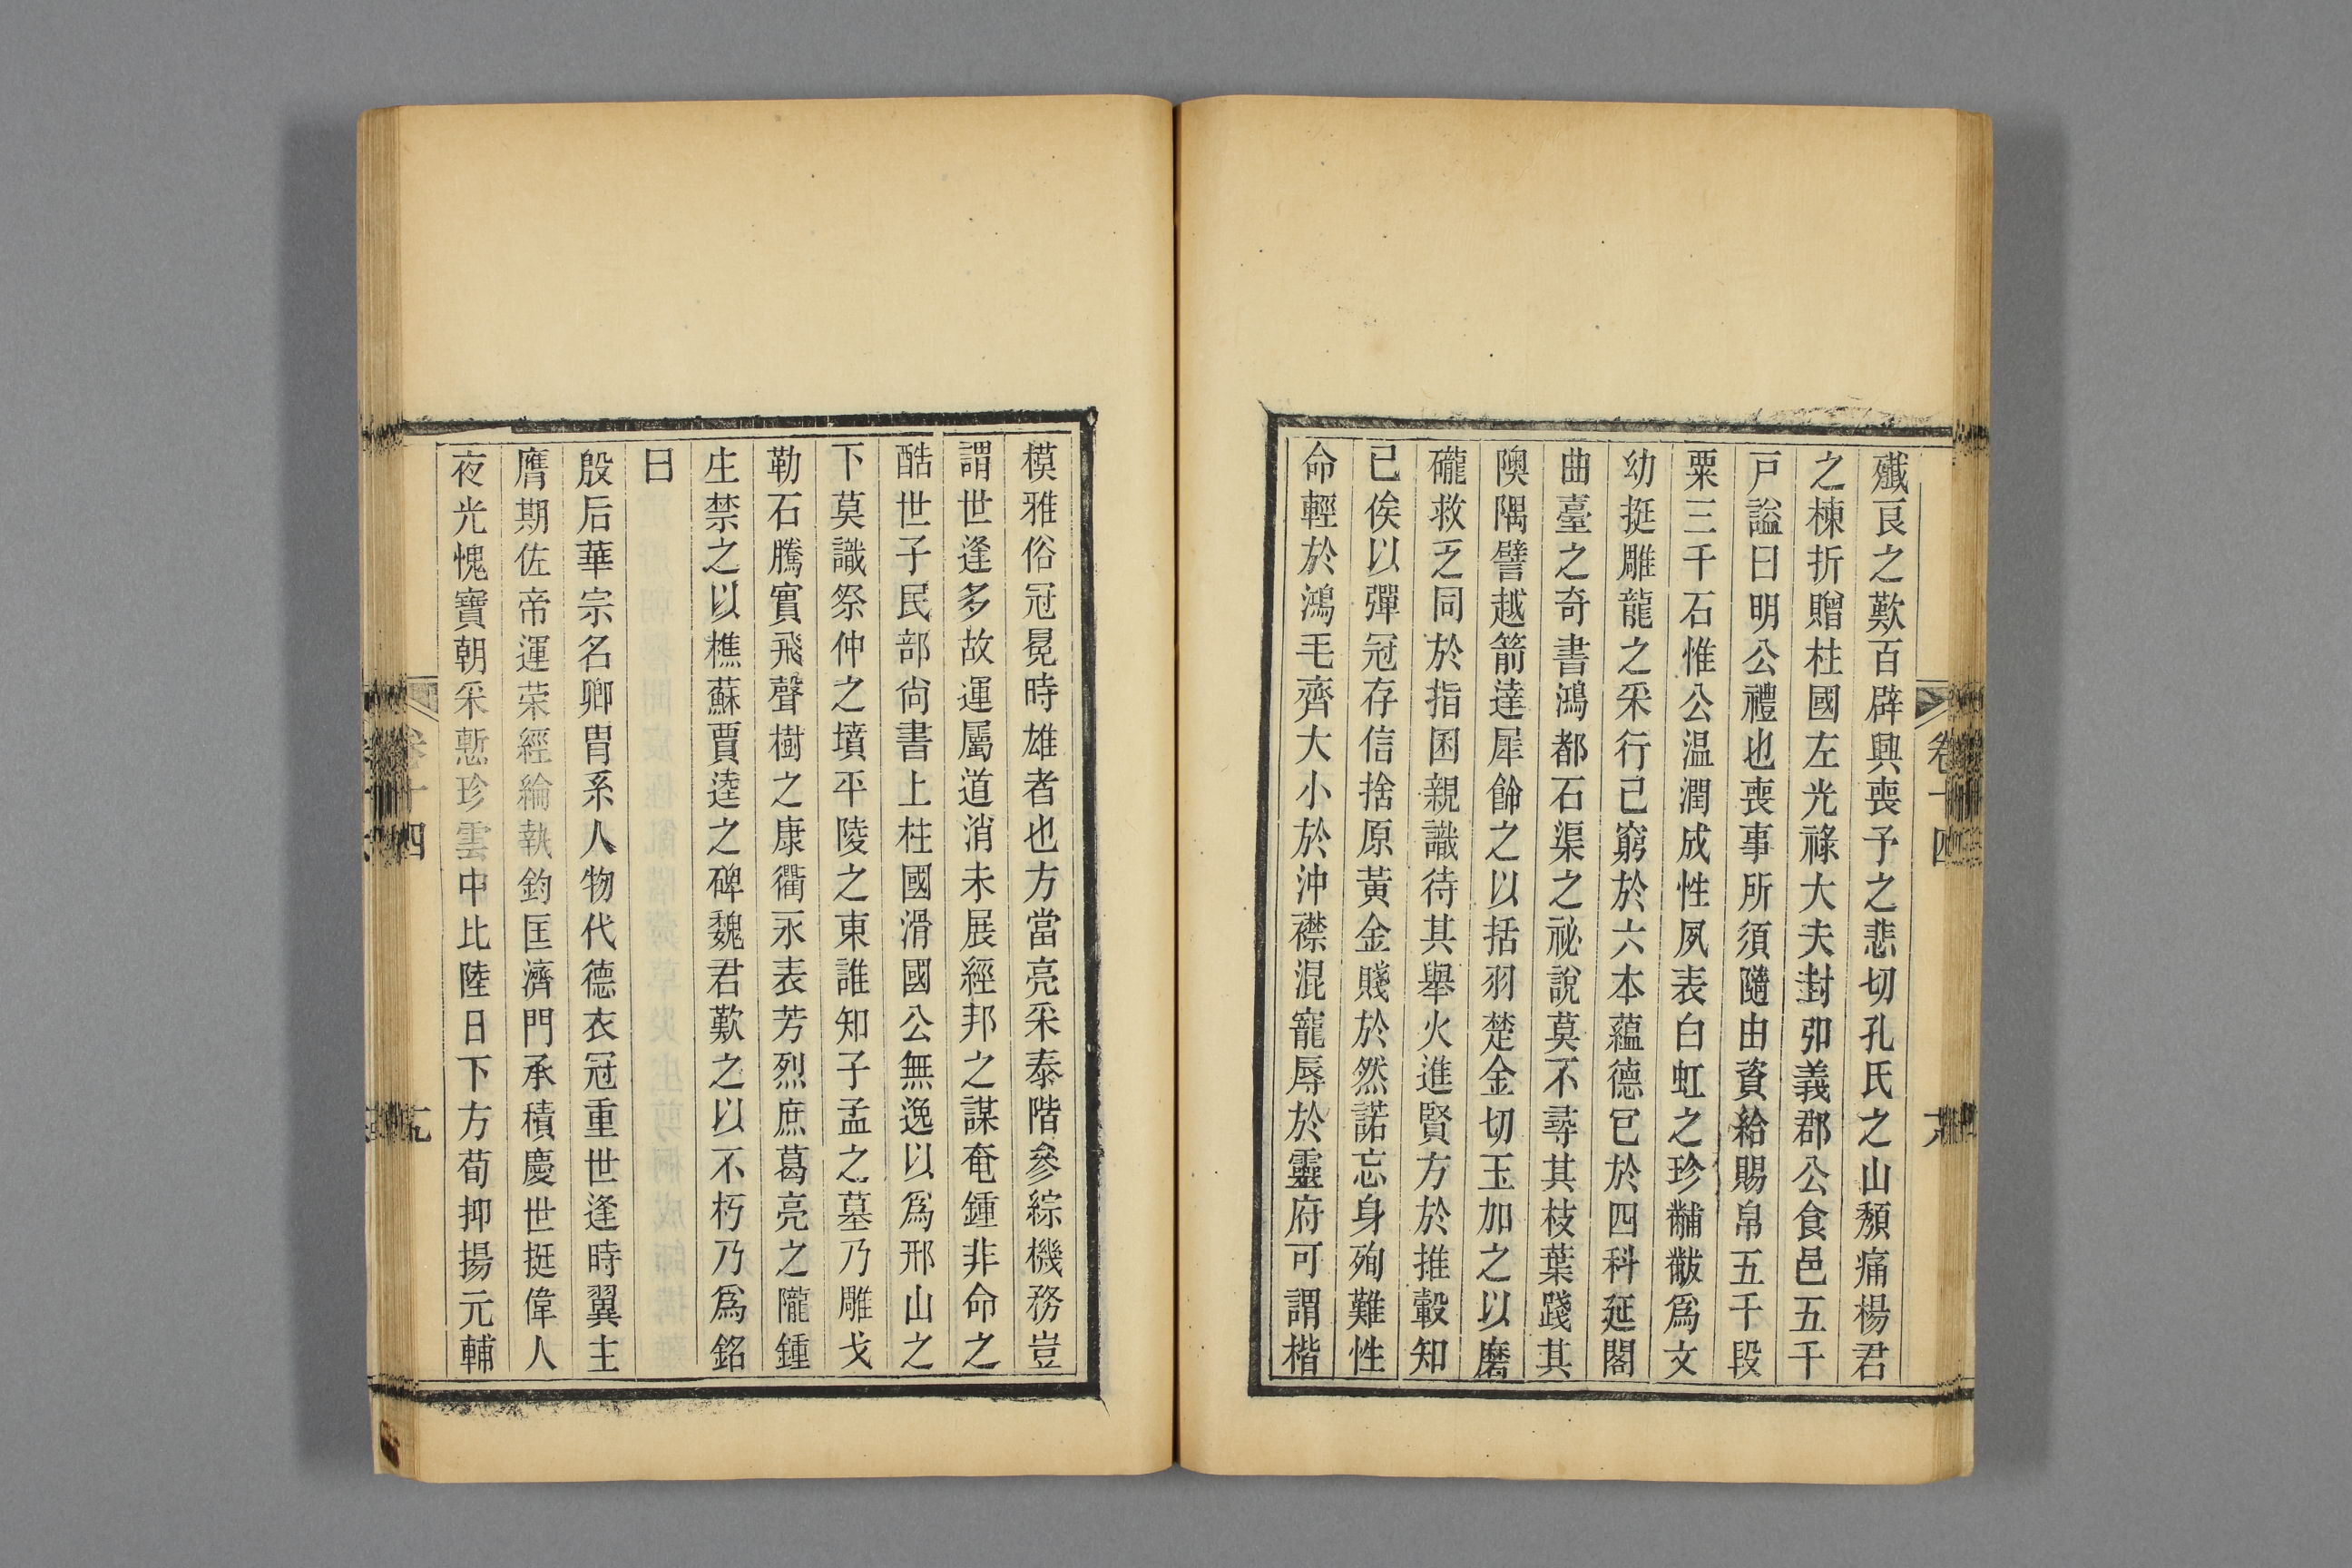 殲良之歎百辟興喪予之悲切孔氏之山頽痛楊君
之棟折贈柱國左光祿大夫封卭義郡公食邑五千
戸諡曰明公禮也喪事所須隨由資給賜帛五千段
粟三千石惟公温潤成性夙表白虹之珍黼黻爲文
幼挺雕龍之采行已窮於六本蘊德包於四科延閣
曲臺之奇書鴻都石渠之祕說莫不尋其枝葉踐其
隩隅譬越箭達犀飾之以括羽楚金切玉加之以磨
礲救乏同於指囷親識待其舉火進賢方於推轂知
已俟以彈冠存信捨原黃金賤於然諾忘身殉難性
命輕於鴻毛齊大小於沖襟混寵辱於靈府可謂楷
卷十四
模雅俗冠冕時雄者也方當亮采泰階參綜機務豈
謂世逢多故運屬道消未展經邦之謀奄鍾非命之
酷世子民部尙書上柱國滑國公無逸以爲邢山之
下莫識祭仲之墳平陵之東誰知子孟之墓乃雕戈
勒石騰實飛聲樹之康衢永表芳烈庶葛亮之隴鍾
生禁之以樵蘇賈逵之碑魏君歎之以不朽乃爲銘
曰
殷后華宗名卿胄系人物代德衣冠重世逢時翼主
膺期佐帝運荣經綸執鈞匡濟門承積慶世挺偉人
夜光愧寶朝采慙珍雲中比陸日下方荀抑揚元輔